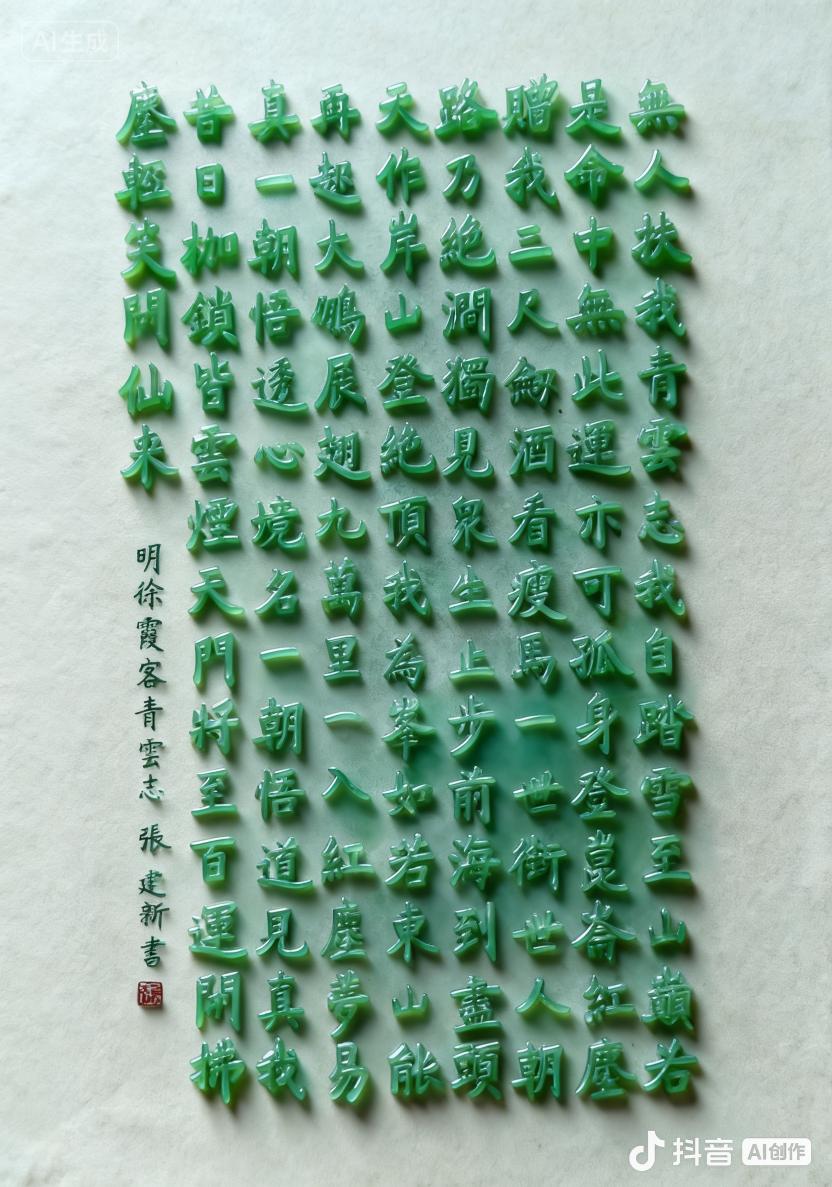 AI生成
無人扶我青雲志我自踏雪至山巔若
是命中無此運亦可孤身登崑崙紅塵
贈我三尺劒酒看瘦馬一世街世人朝
路乃絕澗獨見眾生止步前海到盡頭
天作岸山登絕頂我為峯如若東山能
再起大鵬展翅九萬里一入紅塵夢易
真一朝悟透心境名一朝悟道見真我
昔日枷鎖皆雲煙天門將至百運開拂
塵輕笑問仙来
明徐霞客青雲志 張建新書
抖音 AI创作